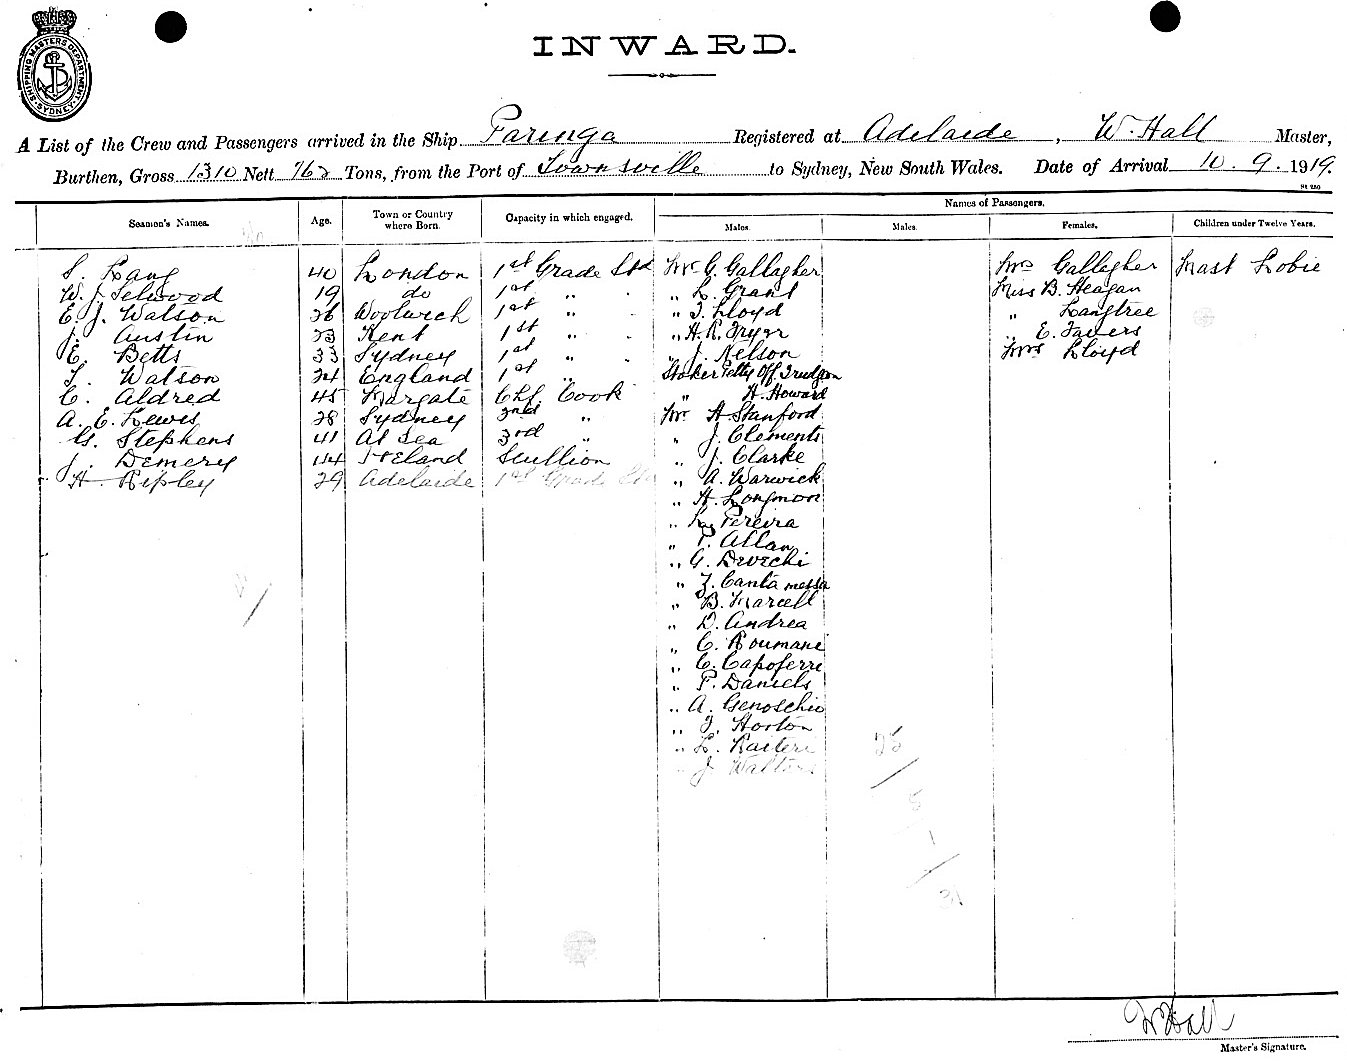 SHIPPING MASTERS DEPARTMENT
SYDNEY
INWARD.
A List of the Crew and Passengers arrived in the Ship Paringa Registered at Adelaide, W. Hall Master,
Burthen, Gross 1310 Nett 762 Tons, from the Port of Townsville to Sydney, New South Wales. Date of Arrival 10.9.1919.
St 250
Seamen's Names. Age. Town or Country where Born. Capacity in which engaged. Names of Passengers.
Males. Males. Females. Children under Twelve Years.
S. Lang 40 London 1st Grade Std Mr G. Gallagher Mrs Gallagher Mast Lobie
W. J. Selwood 19 do 1st " . " L. Grant Miss B. Heagan
E. J. Watson 26 Woolwich 1st " . " T. Lloyd " Langtree
J. Austin 23 Kent 1st " . " H. R. Fryer " E. Favers
E. Betts 33 Sydney 1st " . " J. Nelson Mrs Lloyd
Watson 24 England 1st " Stoker Petty Off Trudgon
C. Aldred 45 Margate Chf Cook " H. Howard
A. E. Lewis 28 Sydney 2nd " Mr H Stanford
G. Stephens 41 At Sea 3rd " " J. Clements
J. Demery 44 Ireland Scullion " J. Clarke
H Ripley 29 Adelaide 1st Grade Std " A. Warwick
" H. Longmon
" Pereira
" P. Allan
" G. Devechi
" Z. Cantamessa
" B. Marcell
" D. Andrea
" C. Roumani
" C. Capoferri
" P. Daniels
" A. Genoschio
" J. Horton
" L. Raiteri
" J Walters
25
/
5
/
31
W Hall
Master's Signature.